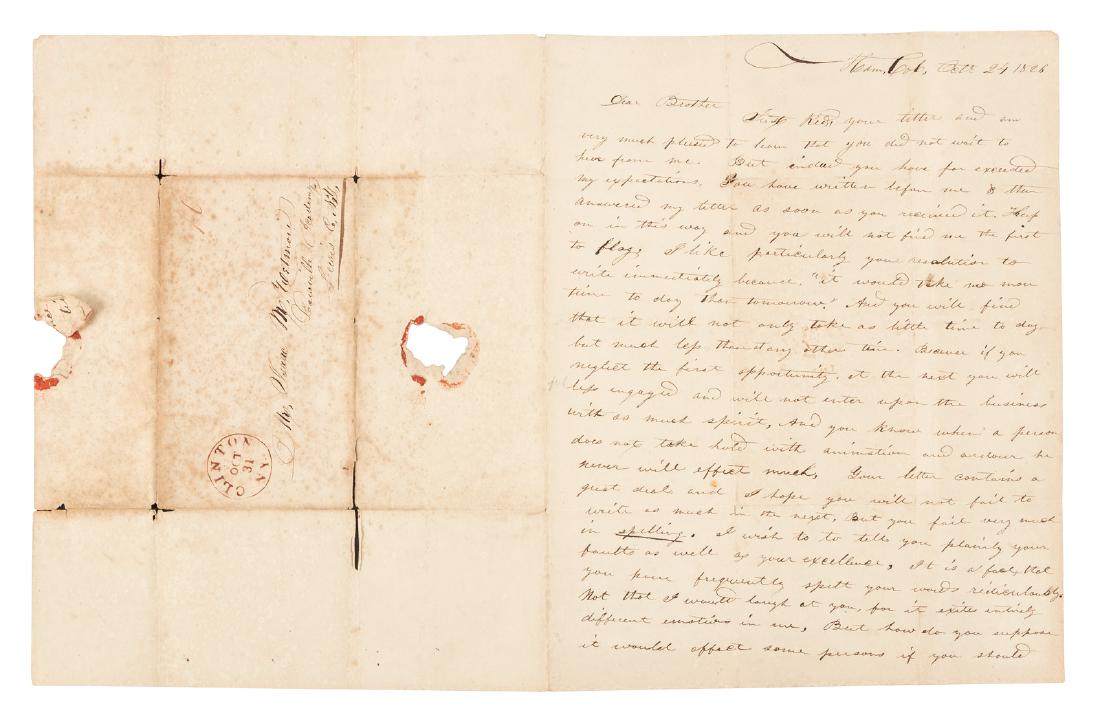 Ham. Col. Octr 24 1826
Dear Brother
Just Recd your letter and am
very much pleased to learn that you did not wait to
hear from me. But indeed you have far exceeded
my expectations. You have written before me & then
answered my letter as soon as you received it. Keep
on in this way and you will not find me the first
to flag. I like particularly your resolution to
write immediately because, "it would take no more
time to day than tomorrow." And you will find
that it will not only take as little time to day
but much less than at any other time. Because if you
neglect the first opportunity, at the next you will
less engaged and will not enter upon the business
with as much spirit. And you know when a person
does not take hold with animation and ardour he
never will effect much. Your letter contains a
great deal and I hope you will not fail to
write as much in the next. But you fail very much
in spelling. I wish to to tell you plainly your
faults as well as your excellence. It is a fact, that
you frequently spell your words rediculously.
Not that I would laugh at you, for it exites entirely
different emotions in me. But how do you suppose
it would effect some persons if you should
Mr. Isaac M. Wetmore
Lowville Academy
Lewis C. N.Y.
CLINTON N.Y
OCT
31
6